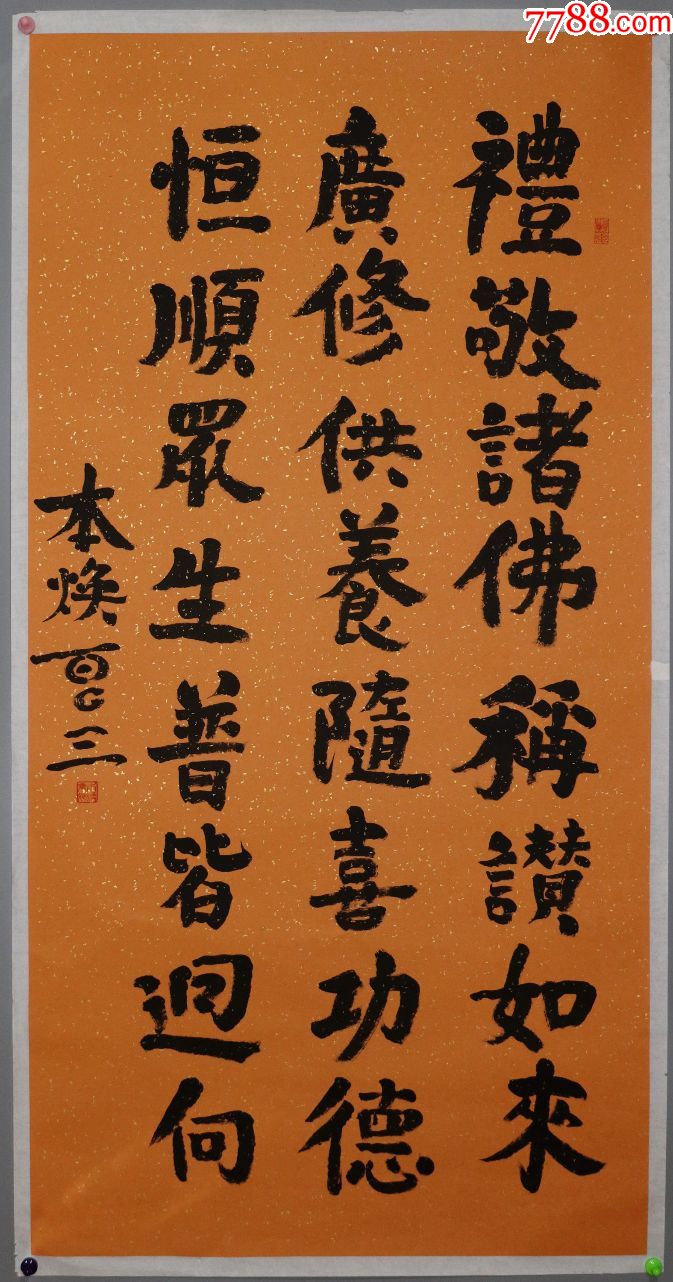 7788.com
禮敬諸佛稱讃如來
廣修供養隨喜功德
恒順眾生普皆迴向
本煥百〇三